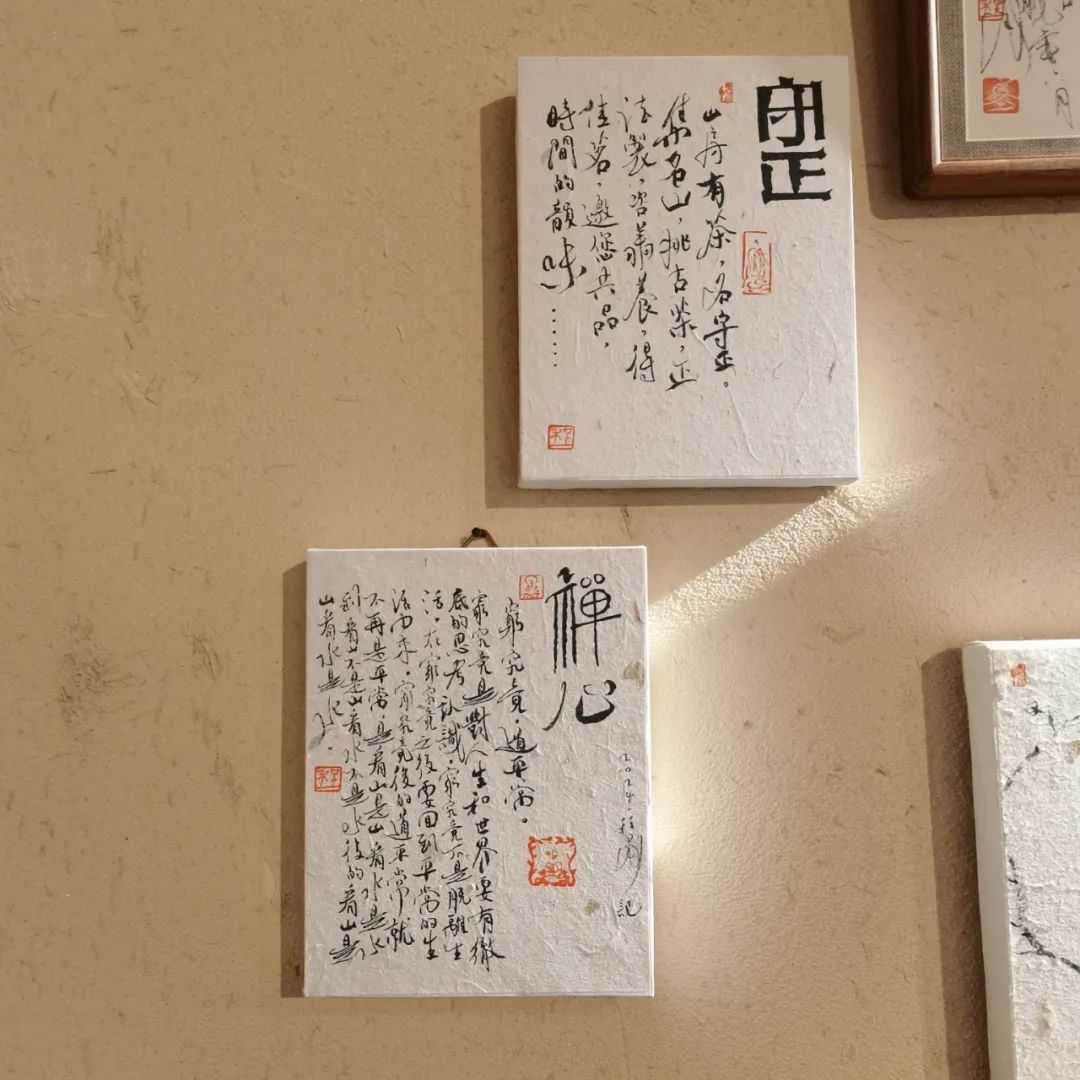 守正
山房有茶，名守正。
集名山，挑古茶，正
法製，咨善養，得
佳茗，邀您共品，
時間的韻味……
禪心
窮究竟，道平常。
窮究竟是對人生和世界要有徹
底的思考認識，窮究竟不是脫離生
活，在窮究竟之後要回到平常的生
活中來。窮究竟後的道平常中就
不再是平常，是看山是山看水是水
到看山不是山看水不是水後的看山是
山看水是水。
記